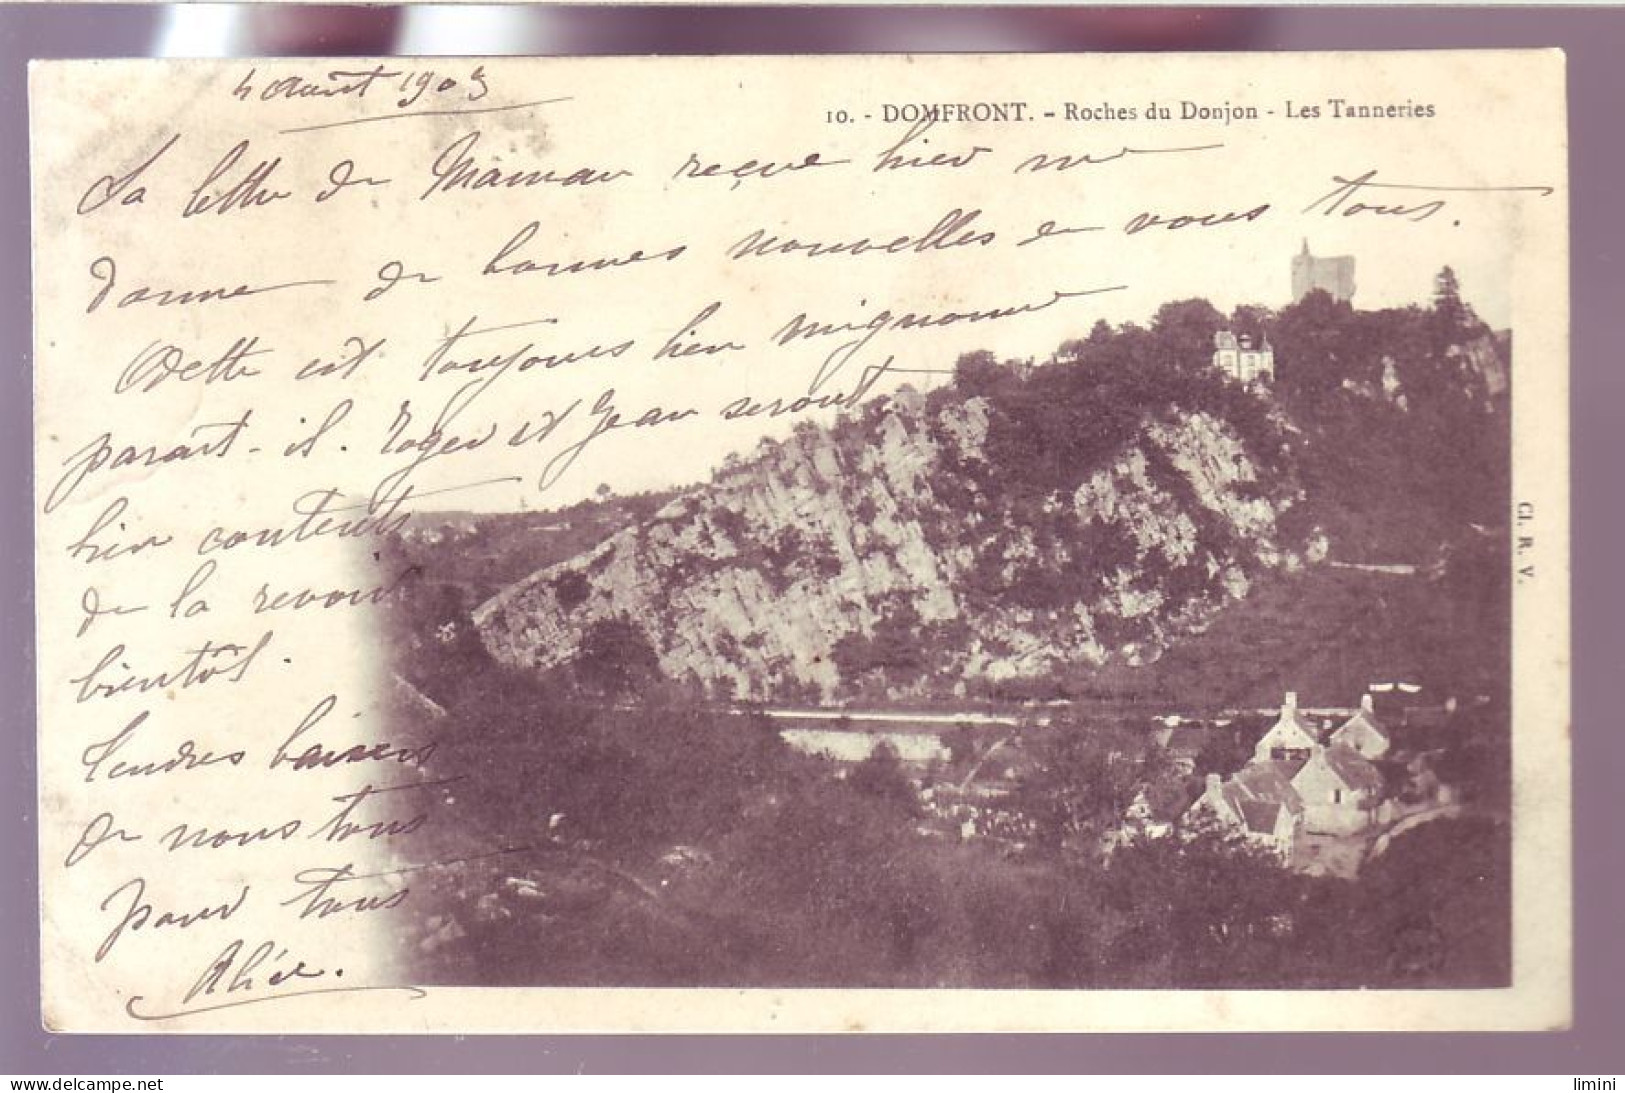 4 Août 1903
10. - DOMFRONT. - Roches du Donjon - Les Tanneries
La lettre de Maman reçue hier me
donne de bonnes nouvelles de vous tous.
Odette est toujours bien mignonne
paraît-il. Roger et Jean seront
bien contents
de la revoir
bientôt.
Tendres baisers
de nous tous
pour tous
Alice.
Cl. R. V.
delcampe.net
limini